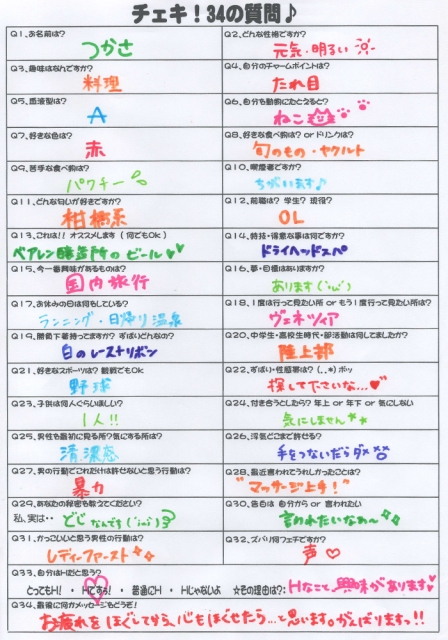 チェキ！34の質問♪
Q1、お名前は？
つかさ
Q2、どんな性格ですか？
元気・明るい
Q3、趣味はなんですか？
料理
Q4、自分のチャームポイントは？
たれ目
Q5、血液型は？
A
Q6、自分を動物にたとえると？
ねこ
Q7、好きな色は？
赤
Q8、好きな食べ物は？ or ドリンクは？
旬のもの・ヤクルト
Q9、苦手な食べ物は？
パクチー
Q10、喫煙者ですか？
ちがいます♪
Q11、どんな匂いが好きですか？
柑橘系
Q12、前職は？ 学生？ 現役？
OL
Q13、これは！！ オススメします（何でもOK）
ベアレン醸造所のビール♥♥
Q14、特技・得意な事は何ですか？
ドライヘッドスパ
Q15、今一番興味があるものは？
国内旅行
Q16、夢・目標はありますか？
あります
Q17、お休みの日は何をしている？
ランニング・日帰り温泉
Q18、1度は行って見たい所 or もう1度行って見たい所は？
ヴェネツィア
Q19、勝負下着持ってますか？ ずばりどんなの？
白のレースとリボン
Q20、中学生・高校生時代・部活動は何してましたか？
陸上部
Q21、好きなスポーツは？ 観戦でもOK
野球
Q22、ずばり・性感帯は？（．．*）ポッ
探して下さいな…♥
Q23、子供は何人ぐらいほしい？
1人！！
Q24、付き合うとしたら？ 年上 or 年下 or 気にしない
気にしません**
Q25、男性を最初に見る所？気にする所は？
清潔感
Q26、浮気どこまで許せる？
手をつないだらダメ
Q27、男の行動でこれだけは許せないと思う行動は？
暴力
Q28、最近言われてうれしかったことは？
"マッサージ上手！"
Q29、あなたの秘密を教えてください？
私、実は・・ どじなんです
Q30、告白は 自分から or 言われたい
言われたいなぁ～
Q31、かっこいいと思う男性の行動は？
レディーファースト
Q32、ズバリ何フェチですか？
声♡
Q33、自分はHだと思う？
とってもH！ ・ Hですぅ！ ・ 普通にH ・ Hじゃないよ ☆その理由は？： Hなこと、興味があります♥
Q34、最後に何かメッセージをどうぞ！
お疲れをほぐしてから、心もほぐせたら…と思います。がんばります！！